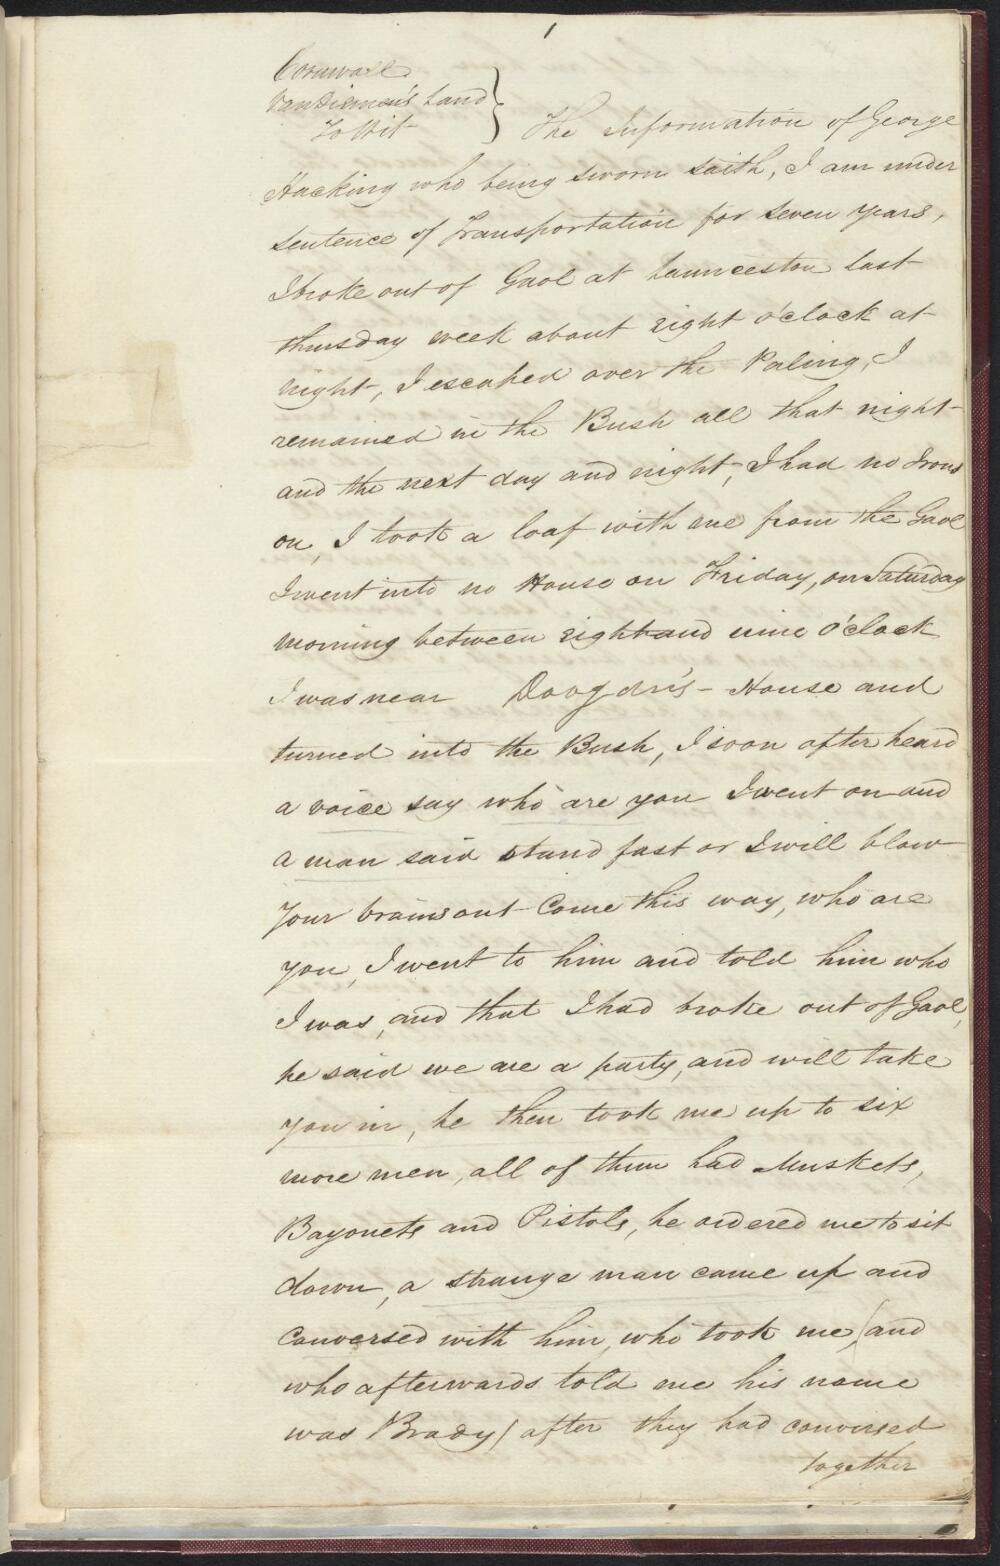 1
Cornwall
Van Diemen's Land
To Wit
The Information of George
Hacking who being sworn saith, I am under
sentence of Transportation for seven years,
I broke out of Gaol at Launceston last
thursday week about eight o'clock at
night, I escaped over the Paling, I
remained in the Bush all that night
and the next day and night, I had no Irons
on, I took a loaf with me from the Gaol
I went into no House on Friday, on Saturday
morning between eight and nine o'clock
I was near House and
turned into the Bush, I soon after heard
a voice say who are you I went on and
a man said stand fast or I will blow
your brains out Come this way, who are
you, I went to him and told him who
I was, and that I had broke out of Gaol,
he said we are a party, and will take
you in, he then took me up to six
more men, all of them had Muskets,
Bayonets and Pistols, he ordered me to sit
down, a strange man came up and
conversed with him, who took me, (and
who afterwards told me his name
was Brady) after they had conversed
together